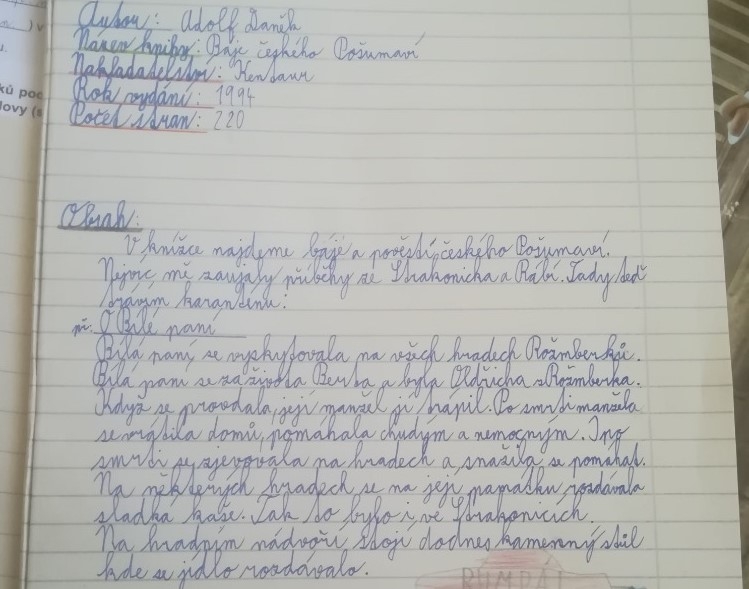 ) v
u.
ků poc
lovy (s
Autor: Adolf Daněk
Název knihy: Báje českého Pošumaví
Nakladatelství: Kentaur
Rok vydání: 1994
Počet stran: 220
Obsah:
V knížce najdeme báje a pověsti českého Pošumaví.
Nejvíc mě zaujaly příběhy ze Strakonicka a Rábí. Tady teď
trávím karanténu:
př. O Bílé paní
Bílá paní se vyskytovala na všech hradech Rožmberků.
Bílá paní se za života Berta a byla Oldřicha z Rožmberka.
Když se provdala, její manžel ji trápil. Po smrti manžela
se vrátila domů, pomáhala chudým a nemocným. I po
smrti se zjevovala na hradech a snažila se pomáhat.
Na některých hradech se na její památku rozdávala
sladká kaše. Tak to bylo i ve Strakonicích.
Na hradním nádvoří stojí dodnes kamenný stůl
kde se jídlo rozdávalo.
RUMPÁL